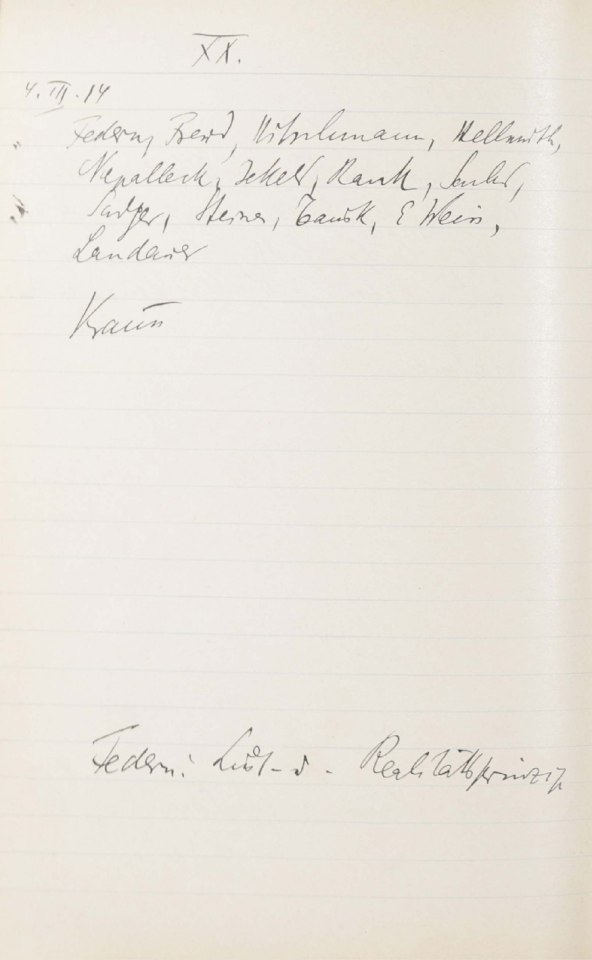 XX.
4. III. 14
Federn, Freud, Hitschmann, Hellmuth,
Nepalleck, Jekels, Rank, Sachs,
Sadger, Steiner, Tausk, E Weiss,
Landauer
Krauss
Federn: Lust- u. Realitätsprinzip